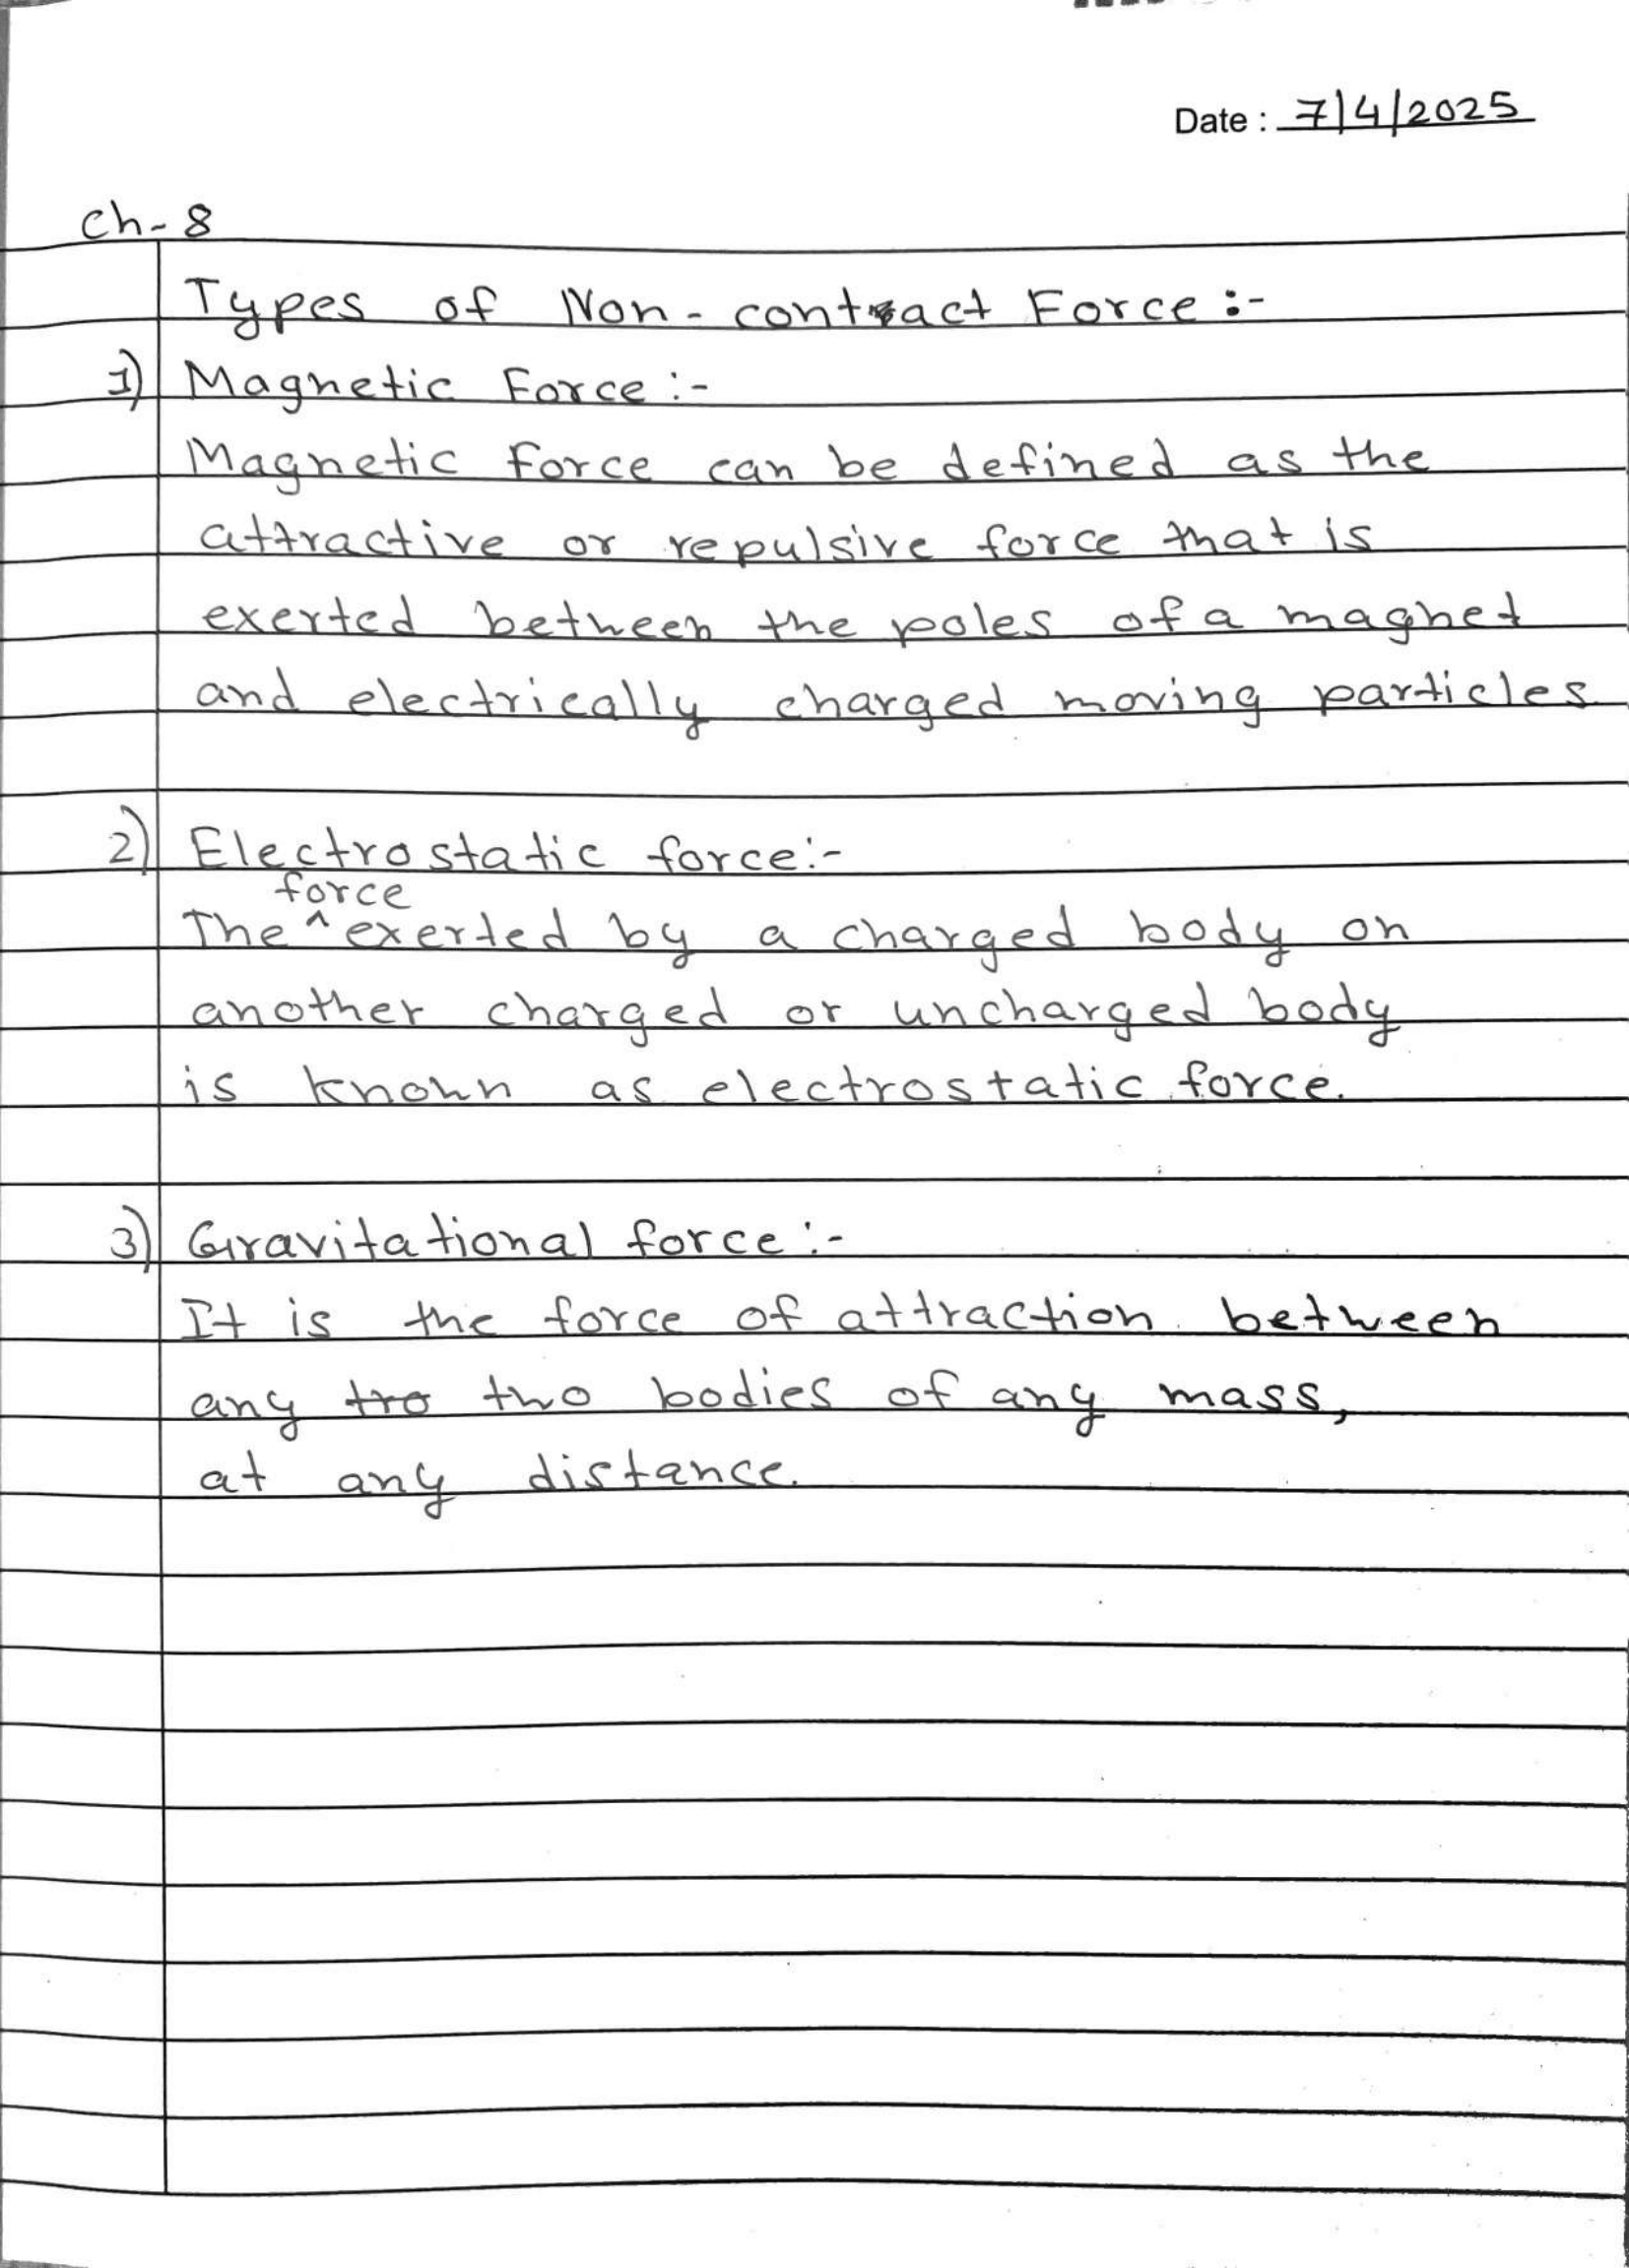 Date : 7/4/2025
Ch-8
Types of Non-contact Force:-
1) Magnetic Force:-
Magnetic Force can be defined as the
attractive or repulsive force that is
exerted between the poles of a magnet
and electrically charged moving particles
2) Electrostatic force:-
force
The ^ exerted by a charged body on
another charged or uncharged body
is known as electrostatic force.
3) Gravitational force:-
It is the force of attraction between
any tro two bodies of any mass,
at any distance.